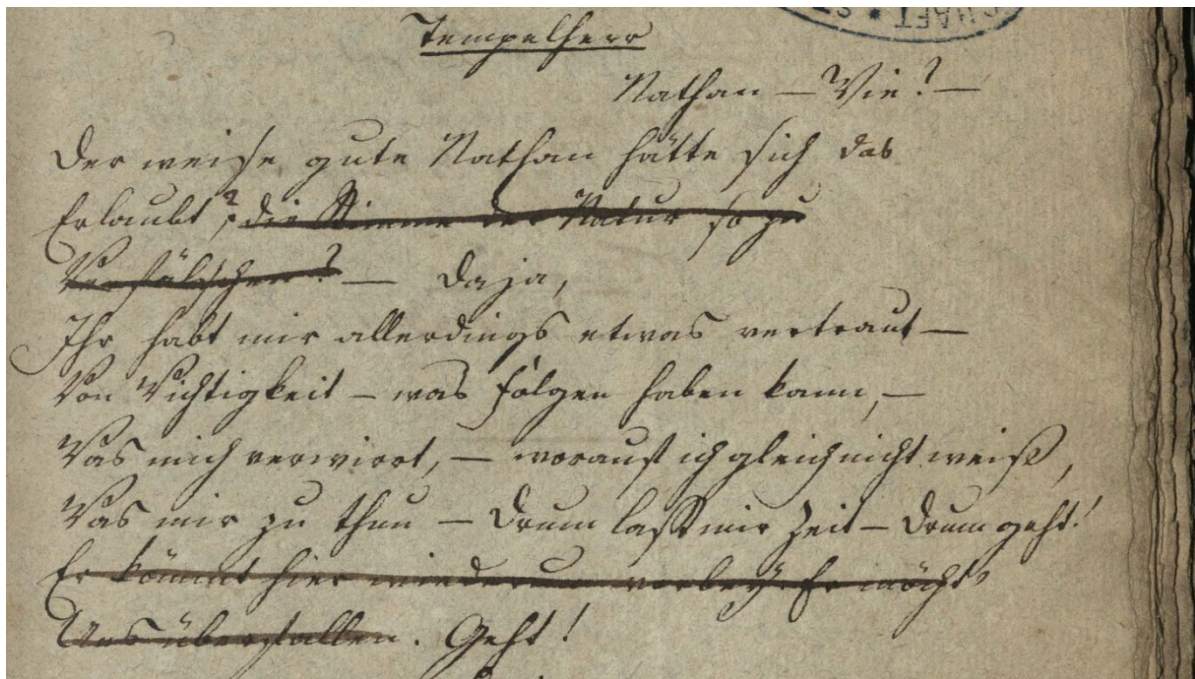 Tempelherr
Nathan – Wie? –
Der weise gute Nathan hätte sich das
Erlaubt? die Stimme der Natur so zu
Verfälschen? – Daja,
Ihr habt mir allerdings etwas vertraut –
Von Wichtigkeit – was Folgen haben kann, –
Was mich verwirrt, – worauf ich gleich nicht weiß,
Was mir zu thun – Drum laßt mir Zeit – Drum geht!
Er kömmt hier wiederum vorbey. Er möcht'
Uns überfallen. Geht!